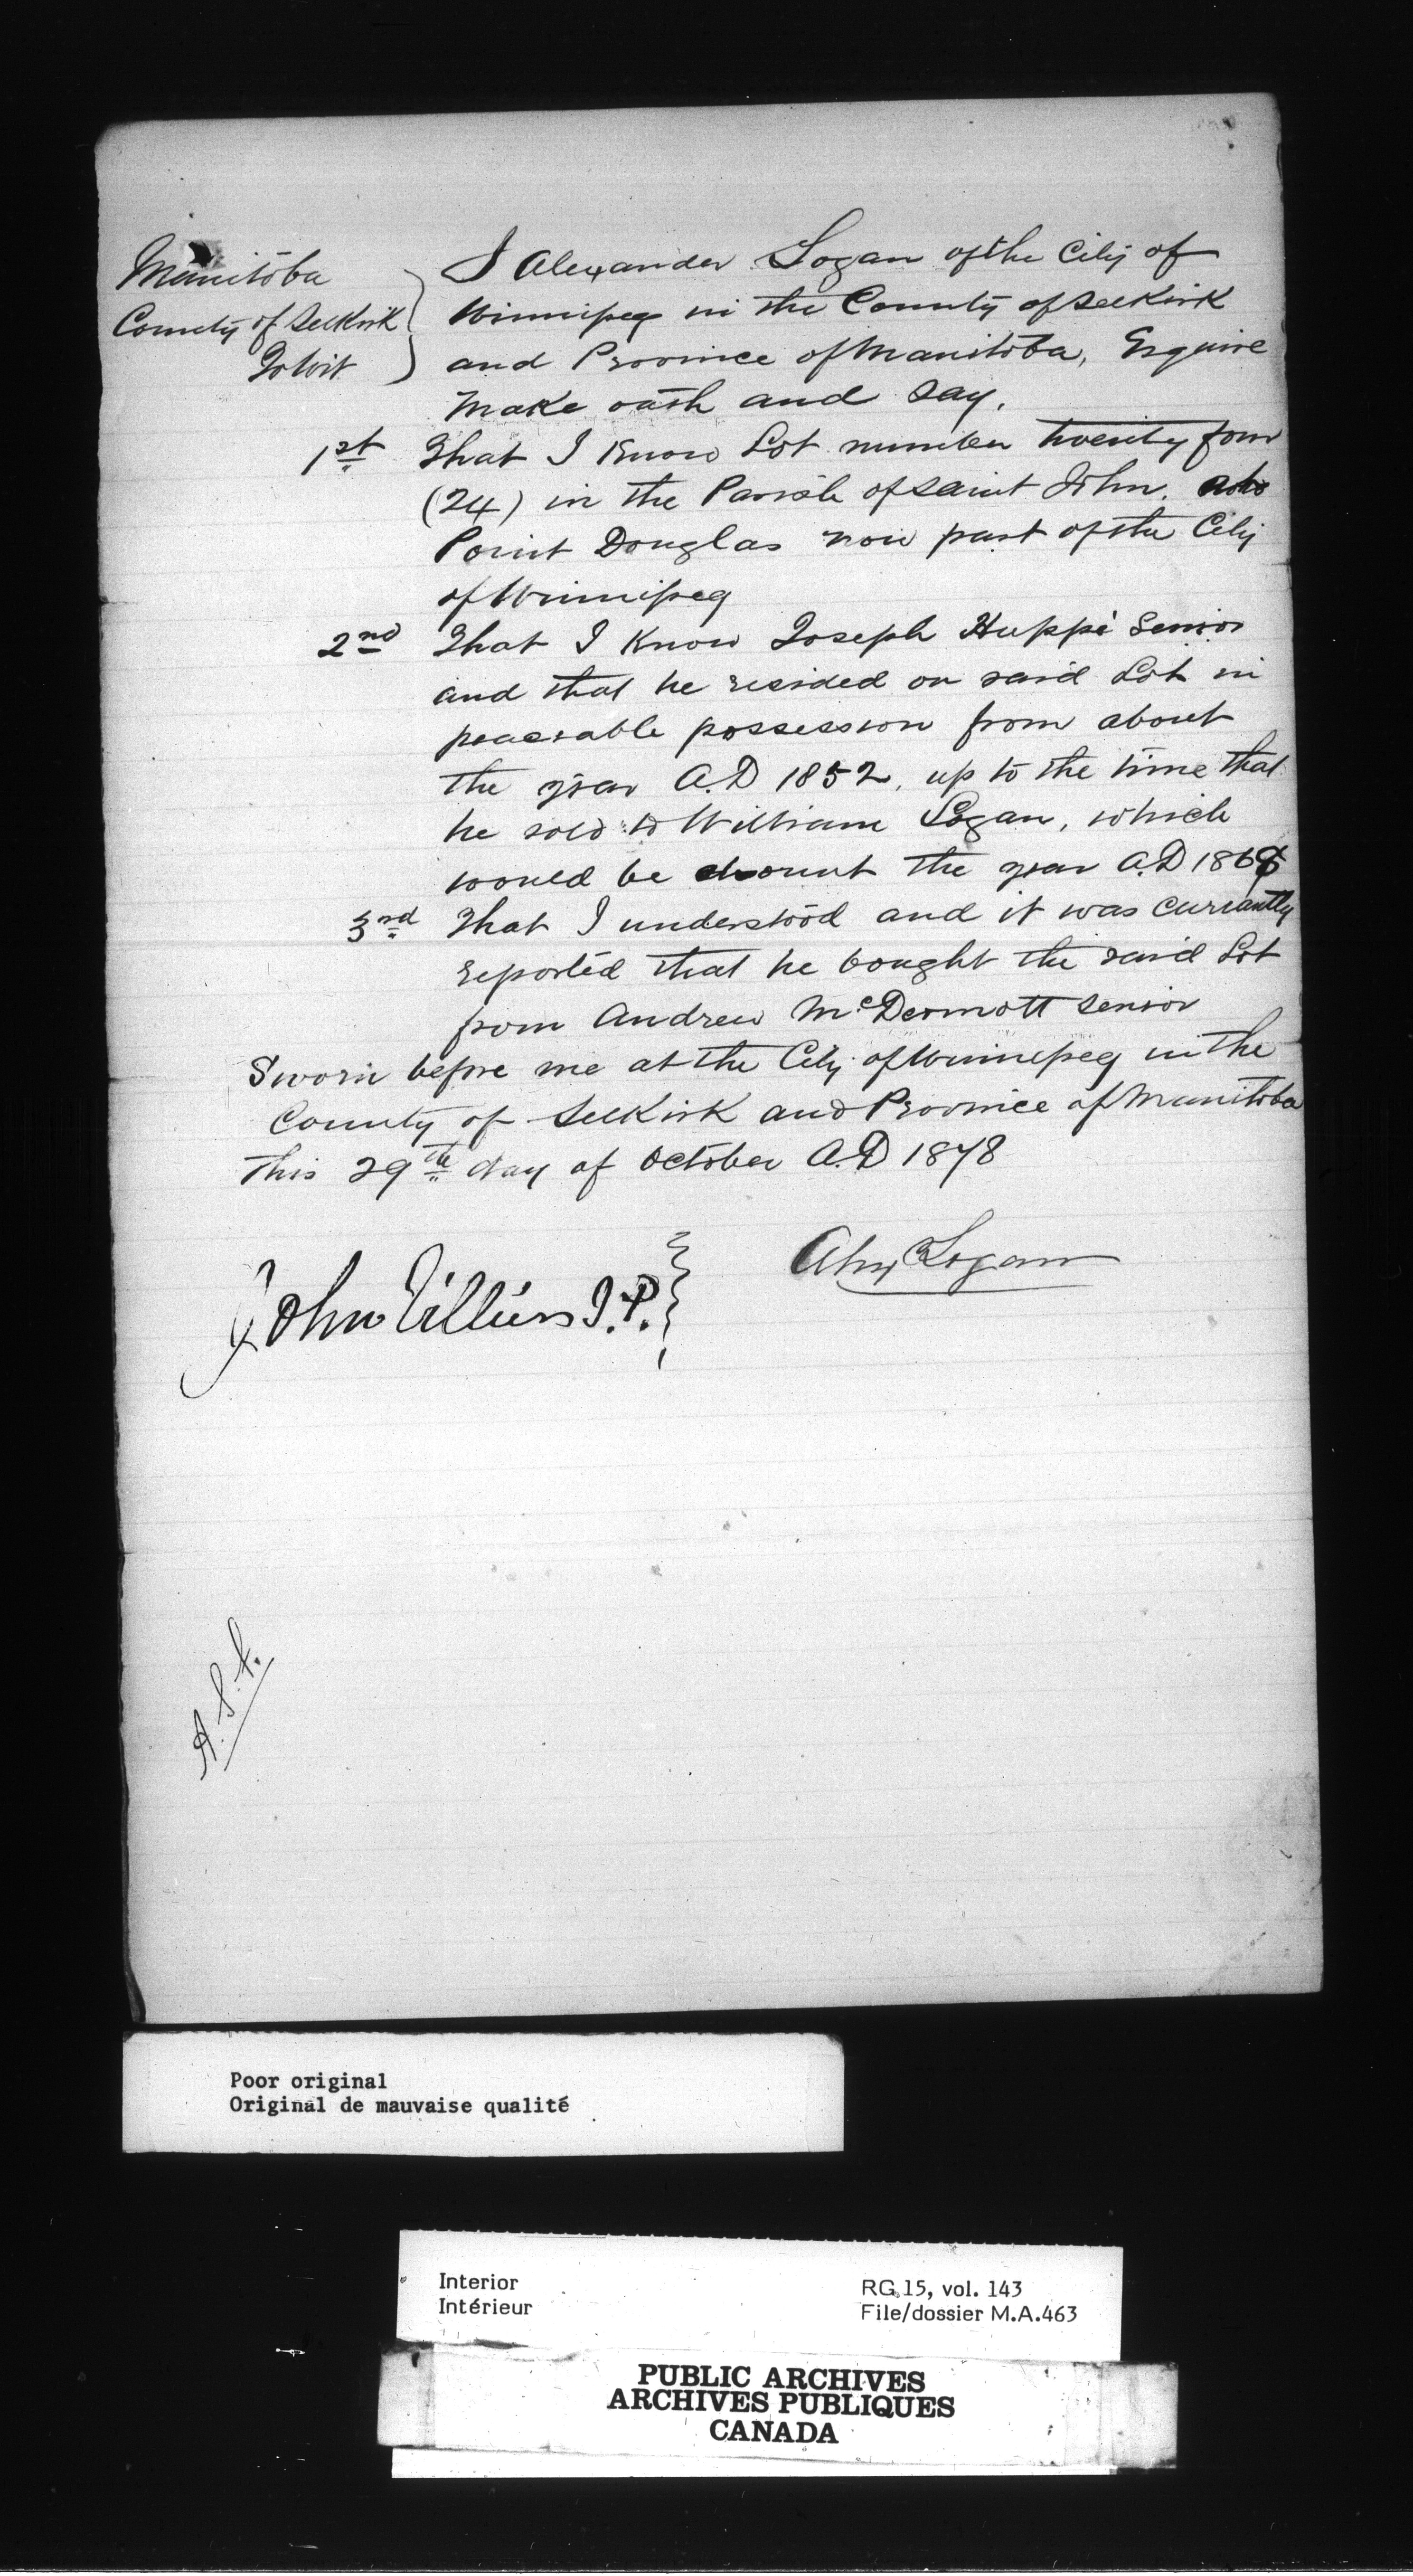 Manitoba
County of Selkirk
To Wit
I Alexander Logan of the City of
Winnipeg in the County of Selkirk
and Province of Manitoba, Esquire
Make oath and say,
1st That I Know Lot number twenty four
(24) in the Parish of Saint John.
Point Douglas now part of the City
of Winnipeg
2nd That I Know Joseph Huppé Senior
and that he resided on said Lot in
peaceable possession from about
the year A.D 1852, up to the time that
he sold to William Logan, which
would be about the year A.D 186
3rd That I understood and it was currantly
reported that he bought the said Lot
from Andrew McDermott Senior
Sworn before me at the City of Winnipeg in the
County of Selkirk and Province of Manitoba
this 29th day of October A.D 1878
Alexr Logan
John Villiers J.P.
Poor original
Original de mauvaise qualité
Interior
Intérieur
RG 15, vol. 143
File/dossier M.A.463
PUBLIC ARCHIVES
ARCHIVES PUBLIQUES
CANADA